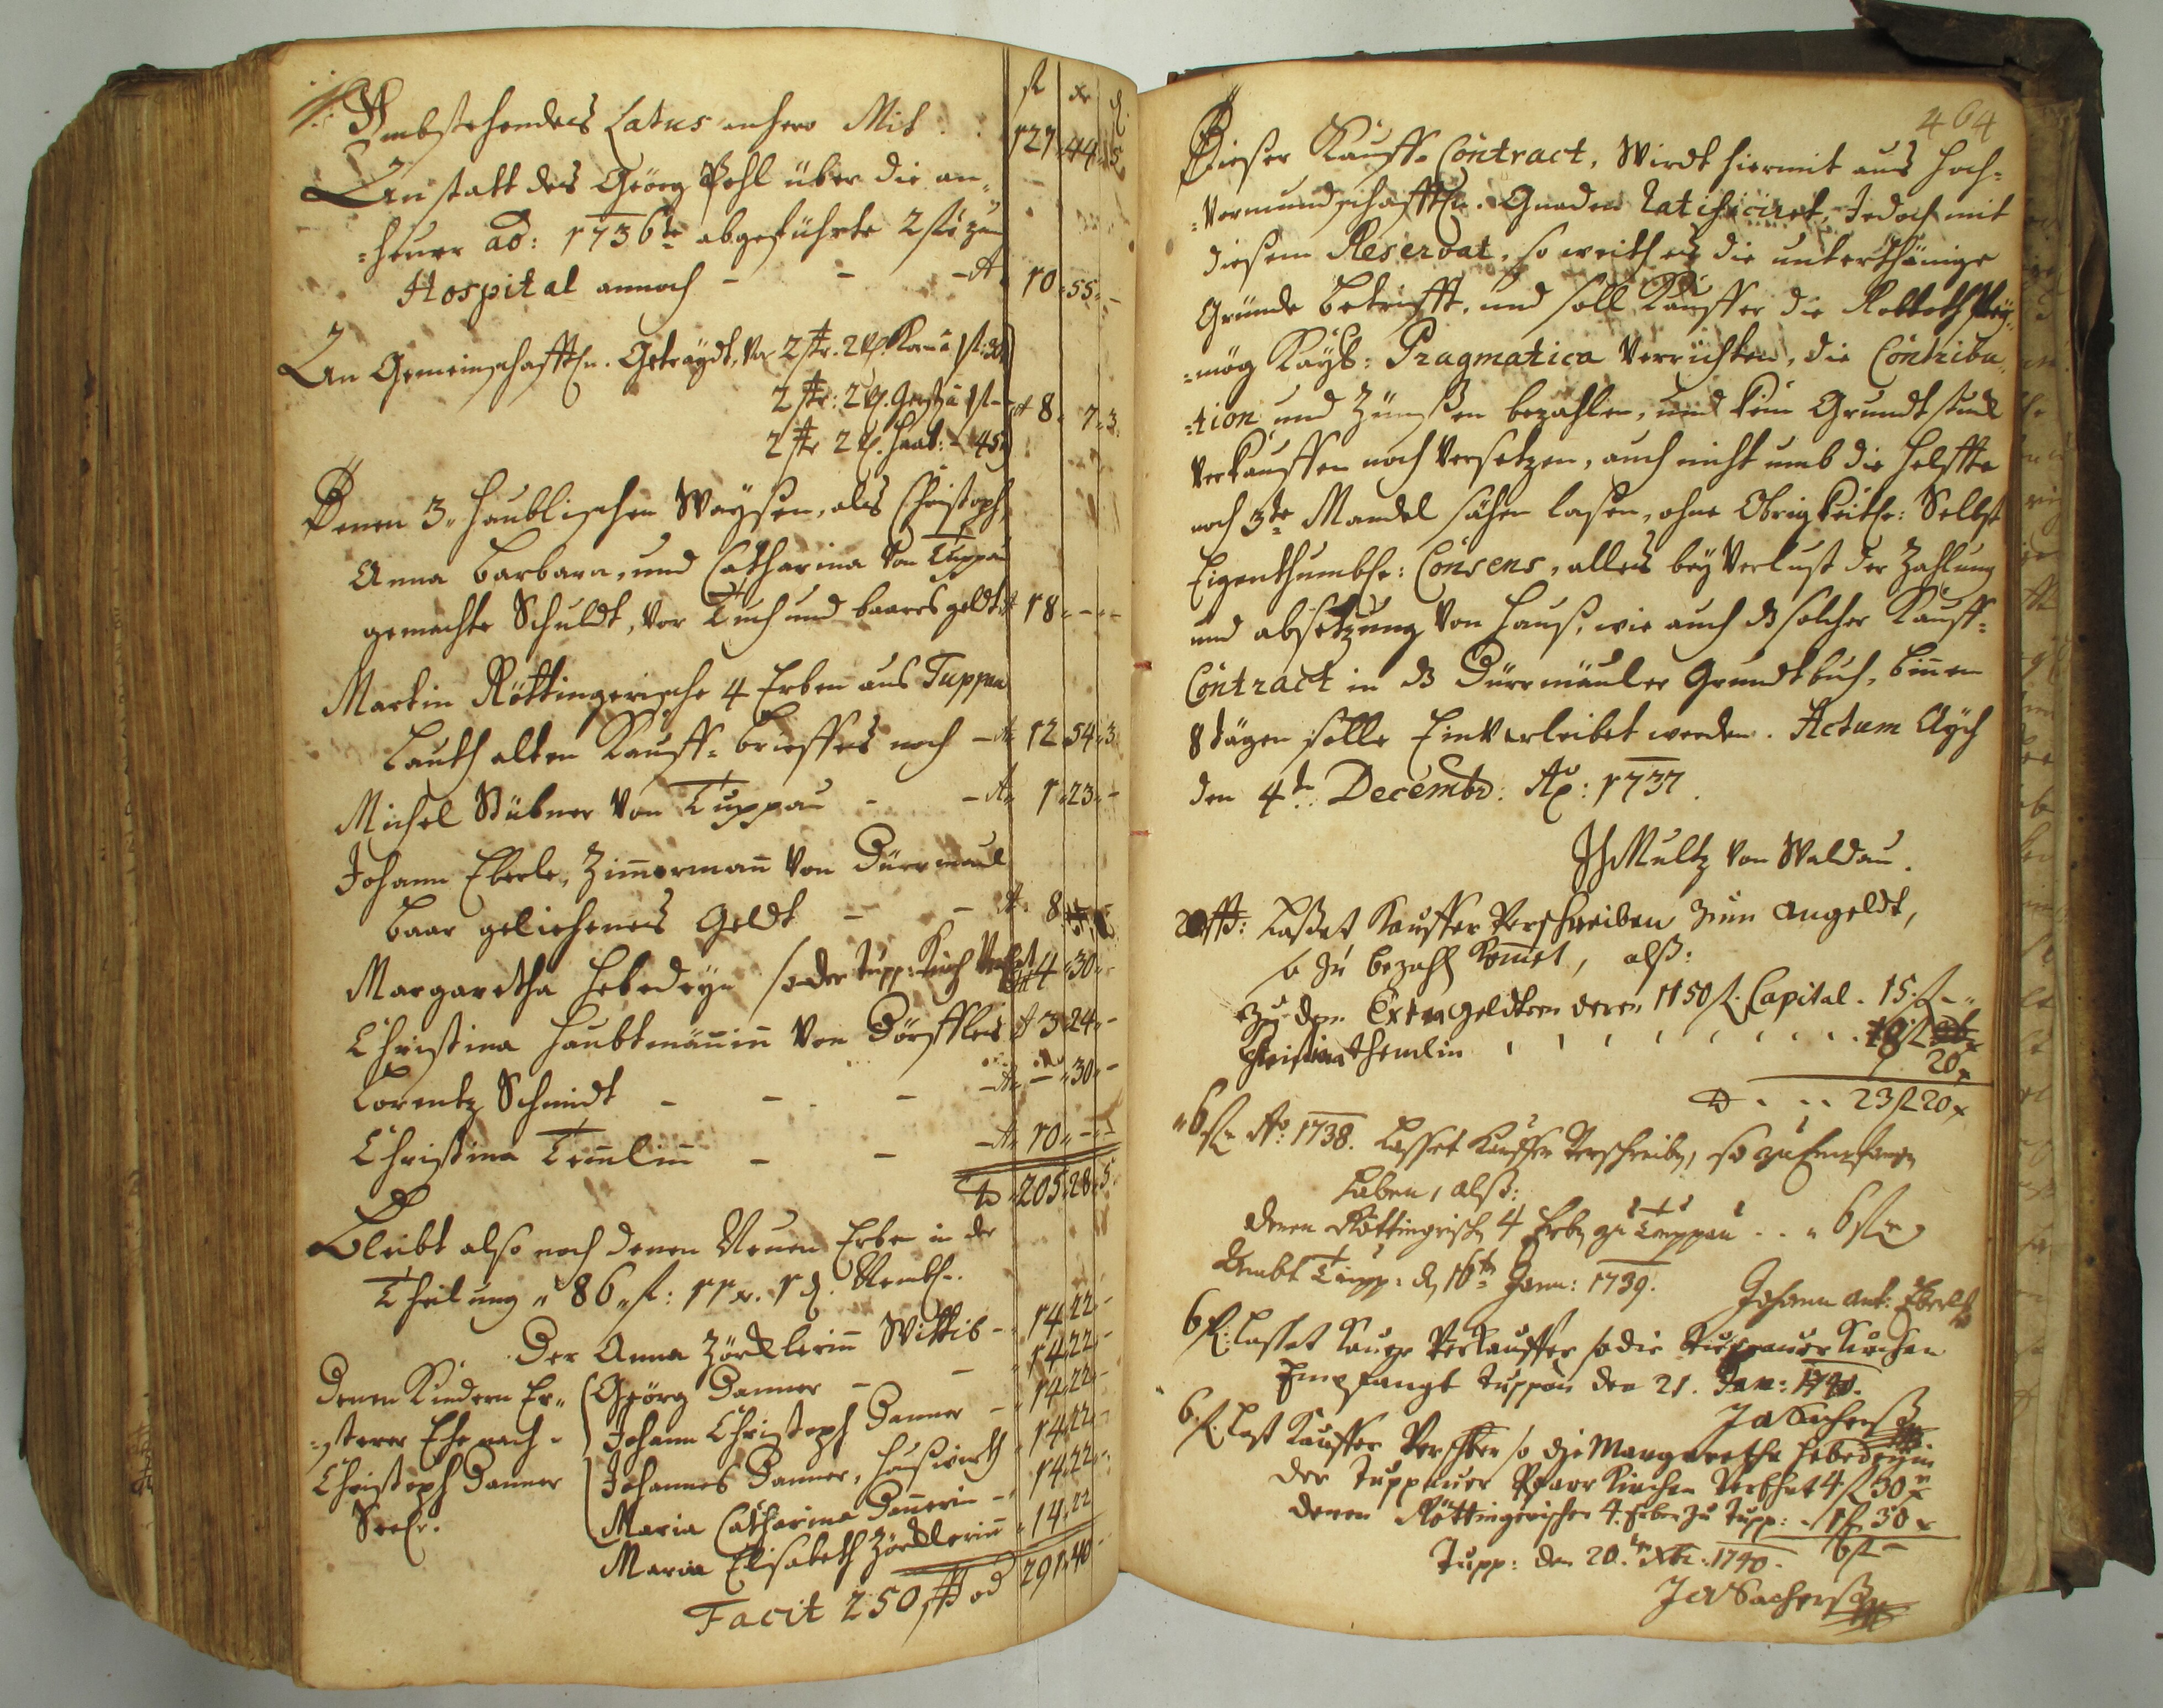 fl xr d
Umbstehendes Latus anhero Mit . . 127 44 5
Anstatt des Geörg Pehl über die an=
=heuer ao: 1736te abgeführte 2 fl: zum
Hospital annoch - - - 10 55 -
An Gemeinschafftl. Getraydt, 2 Str. 2 Korn à 1 fl 30
2 Str: 2 Gerst à 1 fl - 8 7 3
2 Str 2 Haab: - 45
Denen 3 Haublischen Waysen, als Christoph,
Anna Barbara, und Catharina von Tuppau
gemachte Schuldt, vor Tuch und baares geldt 18 - -
Martin Röttingerische 4 Erben aus Tuppau
Lauth alten Kauff=brieffes noch - 12 54 3
Michel Stübner von Tuppau - - 1 23 -
Johann Eberle, Zimmermann von Dürrmaul
baar geliehenes Geldt - - 8
Margaretha Hebedeyn so der Tupp: Kirch 4 30 -
Christina Haubtmännin von Dörffles 3 24 -
Lorentz Schmidt - - - - 30 -
Christina Temlin - - - 10 - -
205 28 5
Bleibt also noch denen Neuen Erben in der
Theilung 86 fl: 11 xr. 1 d. Nembl.
Der Anna Zörklerin Wittib - 14 22 -
Denen Kindern Er= Geörg Danner - - 14 22 -
=sterer Ehe nach Johann Christoph Danner - 14 22 -
Christoph Danner Johannes Danner, Haußwirth 14 22 -
Seel. Maria Catharina Dannerin - 14 22 -
Maria Elisabeth Zörklerin 14 22
Facit 250 ß od 291 40
464
Dieser Kauff=Contract, Wirdt hiermit aus Hoch=
=Vormundschafftl. Gnaden Ratificiret, Jedoch mit
diesem Reservat, so weith es die unterthänige
Gründe betrifft, und soll Kauffer die Robboth
=mög Kayß: Pragmatica verrichten, die Contribu=
=tion und Zünnßen bezahlen, und kein Grundtstuck
verkauffen noch versetzen, auch nicht umb die helffte
noch 3te Mandel sähen lasen, ohne Obrigkeitl: Selbst
Eigenthumbl: Consens, alles bey Verlust der Zahlung
und absetzung von Hauß, wie auch dß solcher Kauff=
Contract in dß Dürrmäuler Grundtbuch, binnen
8 tägen solle Einverleibet werden. Actum Aych
den 4te Decembr: Ao: 1737.
JhMultz von Waldau.
20 ß: Laßet Kauffer Verschreiben zum angeldt,
so zu bezahl Kommet, alß:
zu den Extrageldtern deren 1150 fl. Capital . 15 fl -
Christina Themlin . . . . . . . . 8 fl
20 x
. . . 23 fl 20 x
6 fl Ao: 1738. Lasset Kauffer Verschreiben, so zu Empfangen
haben, alß:
denen Röttingrisch 4 Erben zu Tuppau . . 6 fl
Ambt Tupp: d 16te Janu: 1739. Johann Ant: Eberle
6 fl: Lasset Kauffer Verkauffer so die Tuppauer Kürchen
Empfangt Tuppau den 21. Jan: 1740.
JASacherß
6 fl. Last Kauffer Verschrben so die Margaretha Hebedeyin
der Tuppauer Pfaar Kirchen 4 fl 30 x
denen Röttingerischen 4. Erben zu Tupp: - 1 fl 30 x
Tupp: den 20.ten Xbr: 1740. 6 fl -
JASacherß